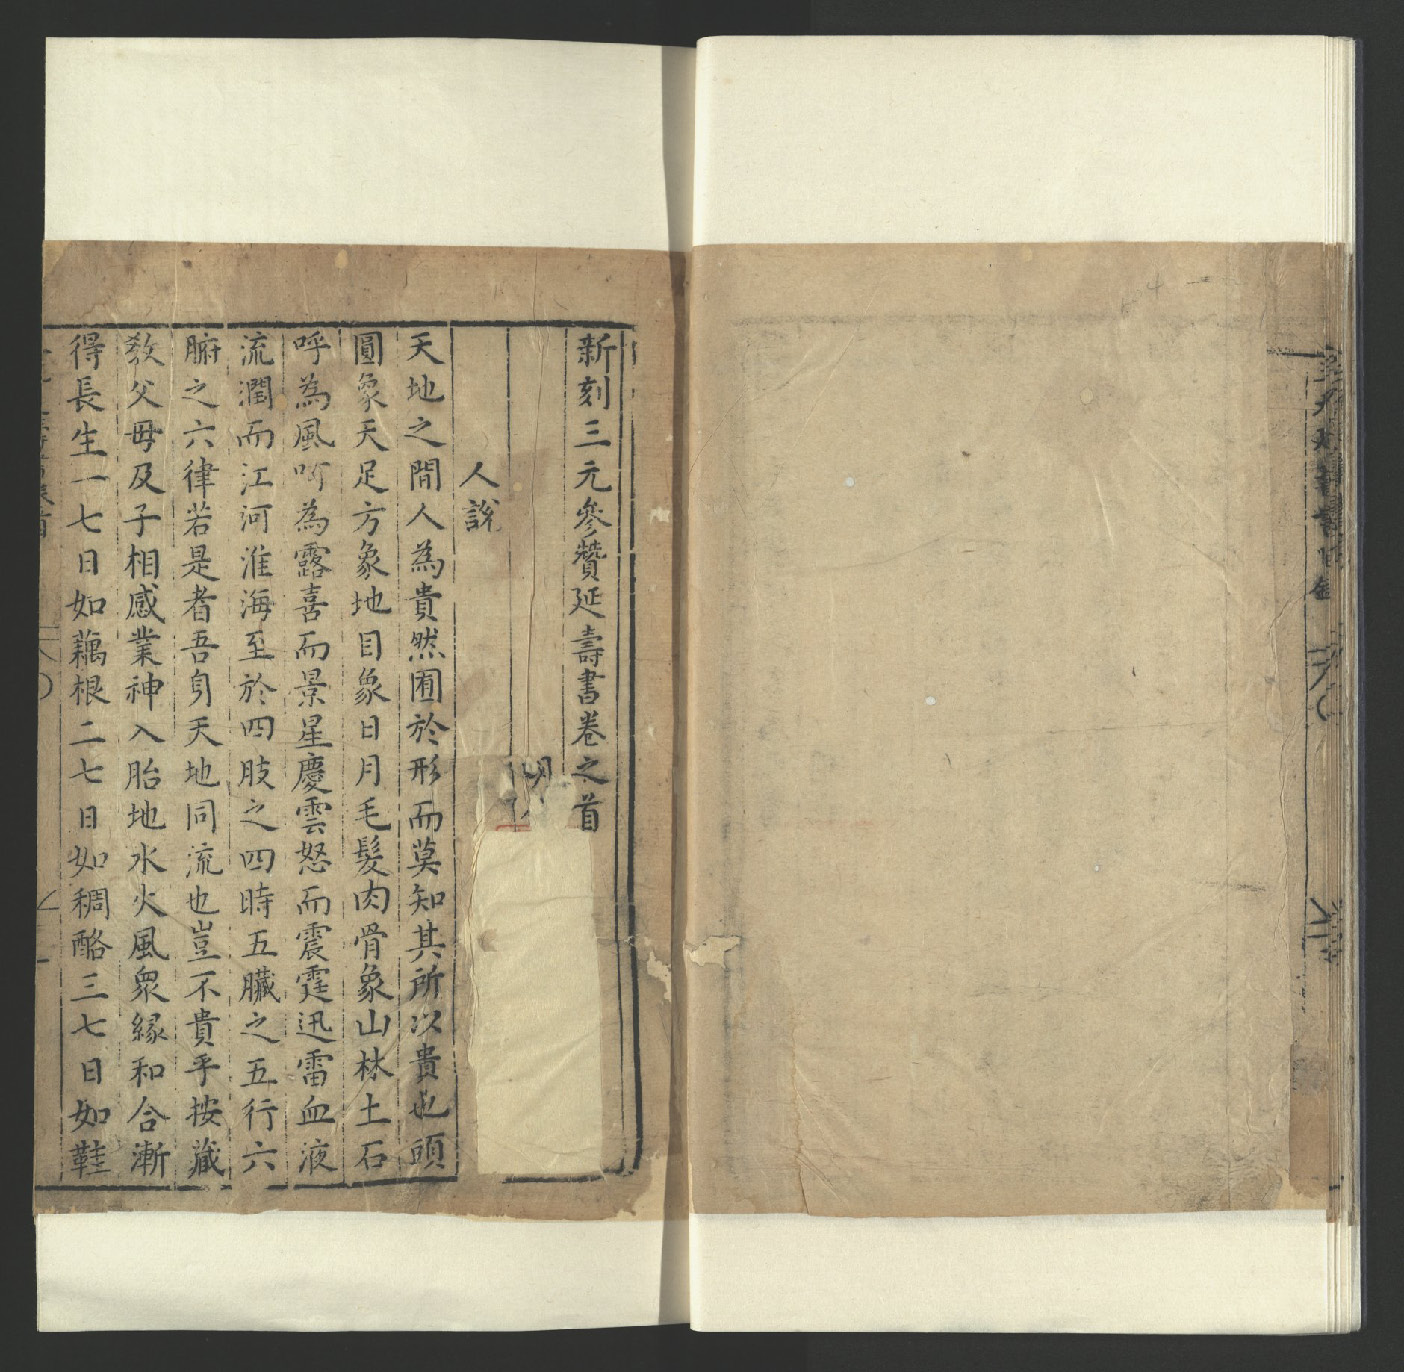 新刻三元參贊延壽書卷之首
明
人說
天地之間人為貴然囿於形而莫知其所以貴也頭
圓象天足方象地目象日月毛髮肉骨象山林土石
呼為風呵為露喜而景星慶雲怒而震霆迅雷血液
流潤而江河淮海至於四肢之四時五臟之五行六
腑之六律若是者吾身天地同流也豈不貴乎按藏
教父母及子相感業神入胎地水火風衆緣和合漸
得長生一七日如藕根二七日如稠酪三七日如鞋